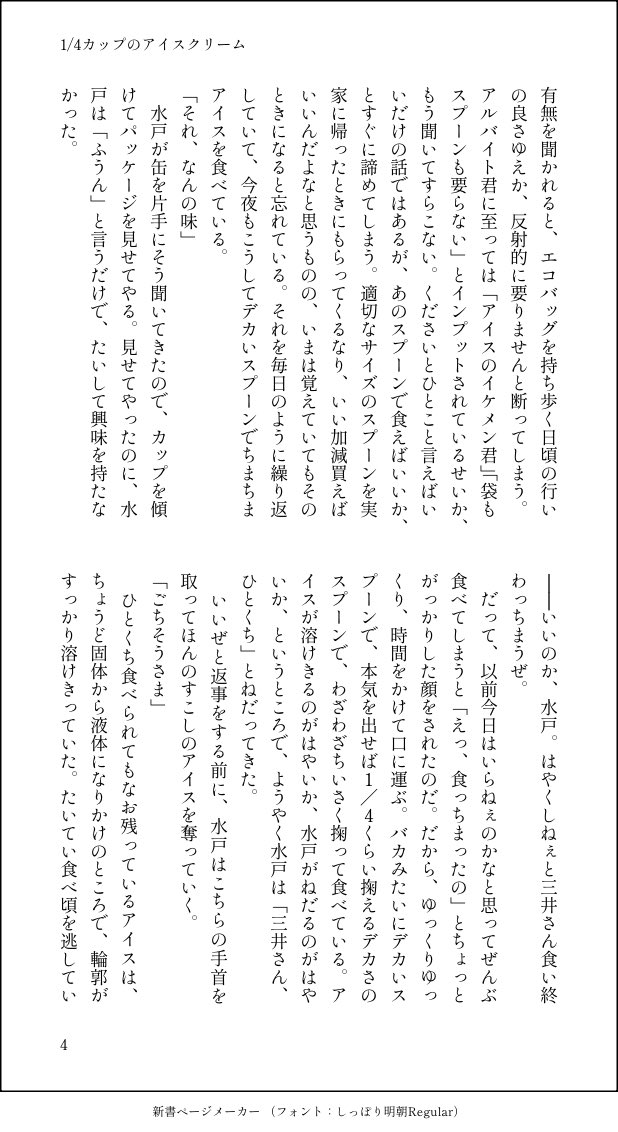 1/4カップのアイスクリーム
有無を聞かれると、エコバッグを持ち歩く日頃の行い
の良さゆえか、反射的に要りませんと断ってしまう。
アルバイト君に至っては「アイスのイケメン君」「袋も
スプーンも要らない」とインプットされているせいか、
もう聞いてすらこない。くださいとひとこと言えばい
いだけの話ではあるが、あのスプーンで食えばいいか、
とすぐに諦めてしまう。適切なサイズのスプーンを実
家に帰ったときにもらってくるなり、いい加減買えば
いいんだよなと思うものの、いまは覚えていてもその
ときになると忘れている。それを毎日のように繰り返
していて、今夜もこうしてデカいスプーンでちまちま
アイスを食べている。
「それ、なんの味」
水戸が缶を片手にそう聞いてきたので、カップを傾
けてパッケージを見せてやる。見せてやったのに、水
戸は「ふうん」と言うだけで、たいして興味を持たな
かった。
――いいのか、水戸。はやくしねぇと三井さん食い終
わっちまうぜ。
だって、以前今日はいらねぇのかなと思ってぜんぶ
食べてしまうと「えっ、食っちまったの」とちょっと
がっかりした顔をされたのだ。だから、ゆっくりゆっ
くり、時間をかけて口に運ぶ。バカみたいにデカいス
プーンで、本気を出せば1／4くらい掬えるデカさの
スプーンで、わざわざちいさく掬って食べている。ア
イスが溶けきるのがはやいか、水戸がねだるのがはや
いか、というところで、ようやく水戸は「三井さん、
ひとくち」とねだってきた。
いいぜと返事をする前に、水戸はこちらの手首を
取ってほんのすこしのアイスを奪っていく。
「ごちそうさま」
ひとくち食べられてもなお残っているアイスは、
ちょうど固体から液体になりかけのところで、輪郭が
すっかり溶けきっていた。たいてい食べ頃を逃してい
4
新書ページメーカー （フォント：しっぽり明朝Regular）